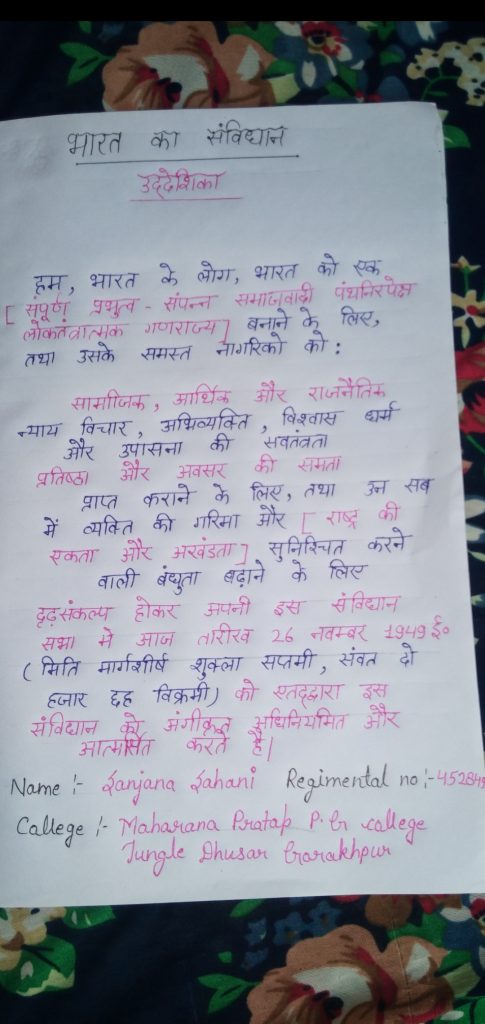 भारत का संविधान
उद्देशिका
हम, भारत के लोग, भारत को एक
[ संपूर्ण प्रभुत्व - संपन्न समाजवादी पंथनिरपेक्ष
लोकतंत्रात्मक गणराज्य ] बनाने के लिए,
तथा उसके समस्त नागरिको को :
सामाजिक, आर्थिक और राजनैतिक
न्याय विचार, अभिव्यक्ति, विश्वास धर्म
और उपासना की सवतंत्रता
प्रतिष्ठा और अवसर की समता
प्राप्त कराने के लिए, तथा उन सब
में व्यक्ति की गरिमा और [ राष्ट्र की
एकता और अखंडता ] सुनिश्चित करने
वाली बंधुता बढ़ाने के लिए
दृढ़संकल्प होकर अपनी इस संविधान
सभा में आज तारीख 26 नवम्बर 1949 ई०
( मिति मार्गशीर्ष शुक्ला सप्तमी, संवत दो
हजार छह विक्रमी) को एतद्द्वारा इस
संविधान को अंगीकृत अधिनियमित और
आत्मार्पित करते है|
Name :- Sanjana Sahani Regimental no :- 452849
Callege :- Maharana Pratap P.G college
Jungle Dhusar Gorakhpur